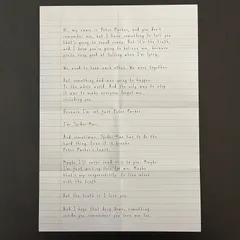 Hi, my name is Peter Parker, and you don't
remember me, but I have something to tell you
that's going to sound crazy. But it's the truth,
and I hope you're going to believe me, because
you're very good at telling when I'm lying.
We used to know each other. We were together.
But something bad was going to happen.
To the whole world. And the only way to stop
it was to make everyone forget me.
Including you.
Because I'm not just Peter Parker.
I'm Spider-Man.
And sometimes, Spider-Man has to do the
hard thing. Even if it breaks
Peter Parker's heart.
Maybe I'll never read this to you. Maybe
I'm just writing this for me. Maybe
that's my responsibility. To live alone
with the truth.
But the truth is I love you.
And I hope that deep down, something
inside you remembers you love me too.